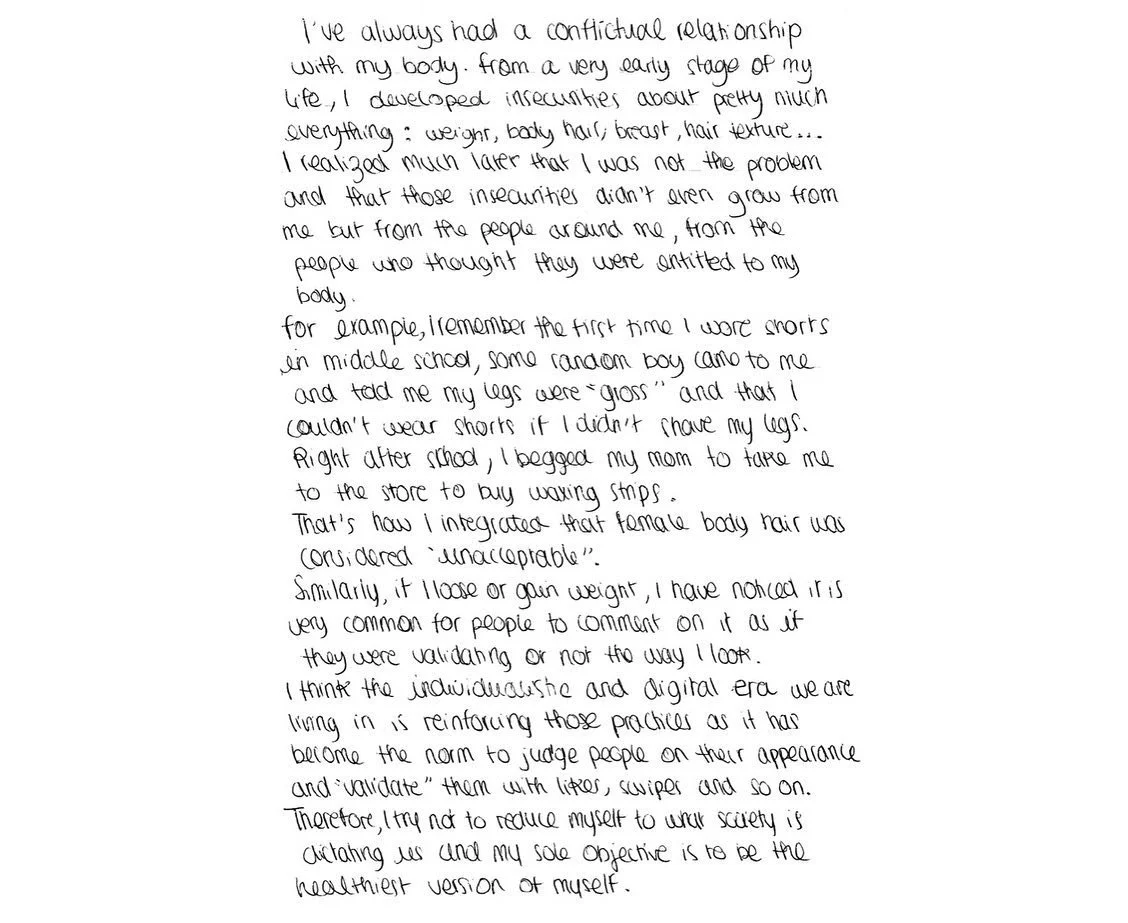 I've always had a conflictual relationship
with my body. from a very early stage of my
life, I developed insecurities about pretty much
everything : weight, body hair, breast, hair texture...
I realized much later that I was not the problem
and that those insecurities didn't even grow from
me but from the people around me, from the
people who thought they were entitled to my
body.
for example, I remember the first time I wore shorts
in middle school, some random boy came to me
and told me my legs were "gross" and that I
couldn't wear shorts if I didn't shave my legs.
Right after school, I begged my mom to take me
to the store to buy waxing strips.
That's how I integrated that female body hair was
considered "unacceptable".
Similarly, if I loose or gain weight, I have noticed it is
very common for people to comment on it as if
they were validating or not the way I look.
I think the individualistic and digital era we are
living in is reinforcing those practices as it has
become the norm to judge people on their appearance
and "validate" them with likes, swipes and so on.
Therefore, I try not to reduce myself to what society is
dictating us and my sole objective is to be the
healthiest version of myself.